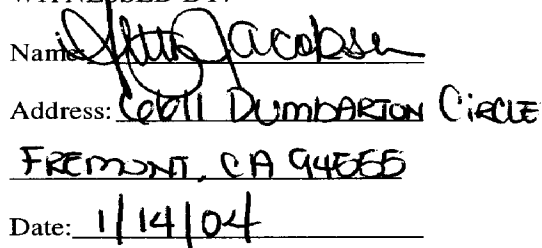 WITNESSED BY:
Name: Jacobsen
Address: 6611 DUMBARTON CIRCLE
FREMONT, CA 94555
Date: 1/14/04